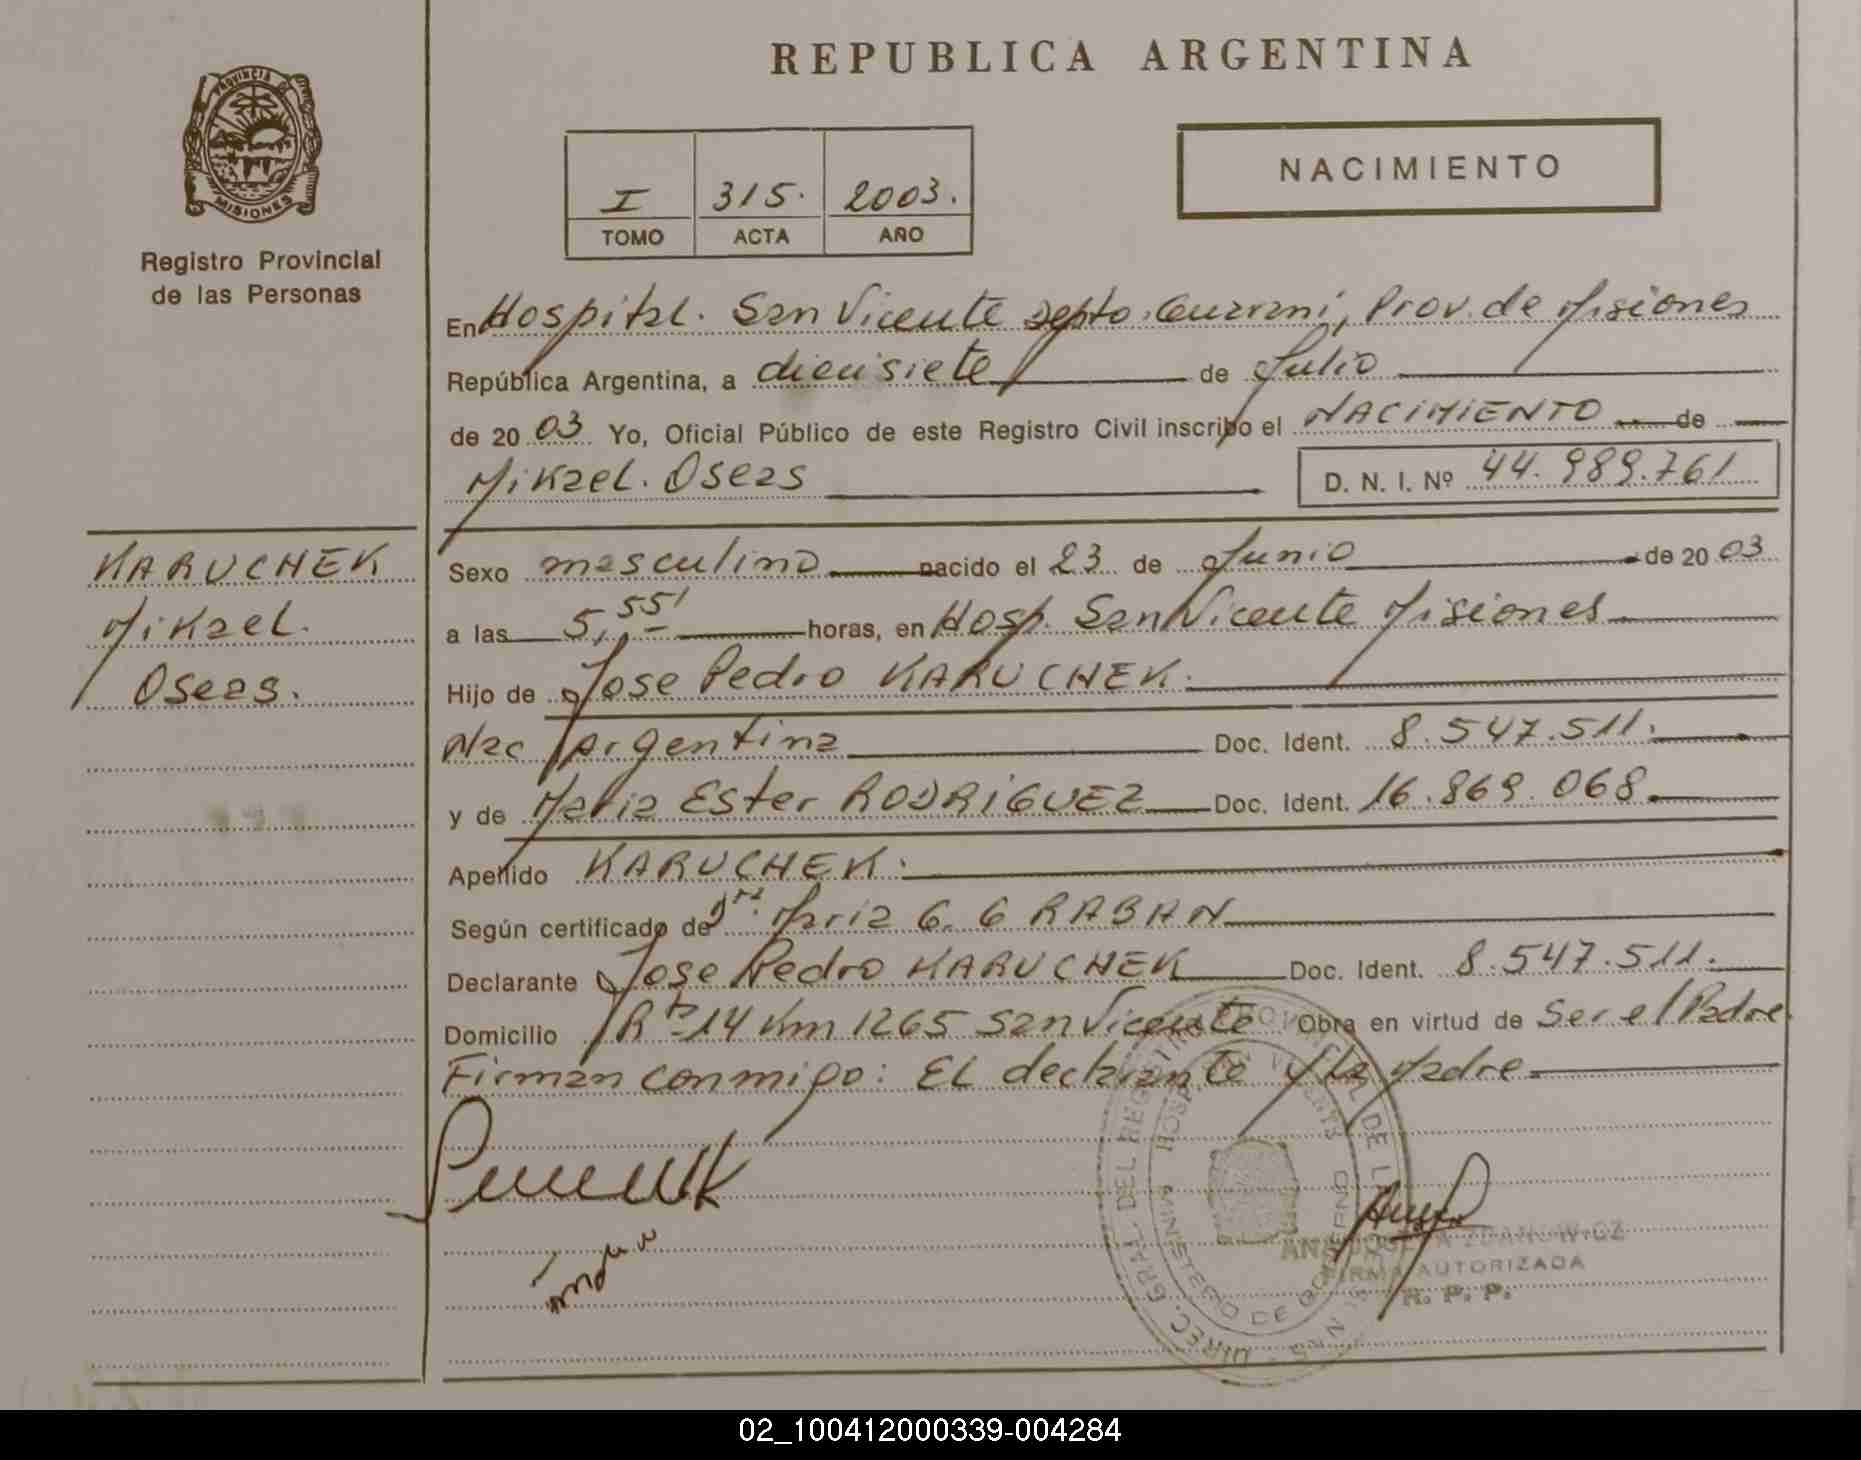 REPUBLICA ARGENTINA
PROVINCIA DE
MISIONES
Registro Provincial
de las Personas
I 315. 2003.
TOMO ACTA AÑO
NACIMIENTO
En Hospital. San Vicente Depto. Guarani, Prov. de Misiones
República Argentina, a diecisiete de Julio
de 20 03 Yo, Oficial Público de este Registro Civil inscribo el NACIMIENTO de
Mikael. Oseas
D. N. I. Nº 44.989.761
KARUCHEK
Mikael.
Oseas.
Sexo masculino nacido el 23 de Junio de 20 03
a las 5,55' horas, en Hosp. San Vicente Misiones
Hijo de Jose Pedro KARUCHEK.
Nac Argentina Doc. Ident. 8.547.511.
y de Maria Ester RODRIGUEZ Doc. Ident. 16.869.068.
Apellido KARUCHEK.
Según certificado de Maria G. G RABAN
Declarante Jose Pedro KARUCHEK Doc. Ident. 8.547.511.
Domicilio Rta 14 Km 1265 San Vicente Obra en virtud de Ser el Padre
Firman conmigo: El declarante y la Madre.
DIREC. GRAL. DEL REGISTRO PROVINCIAL DE LAS
HOSP. SAN VICENTE
MINISTERIO DE GOBIERNO
FIRMA AUTORIZADA
R. P. P.
02_100412000339-004284